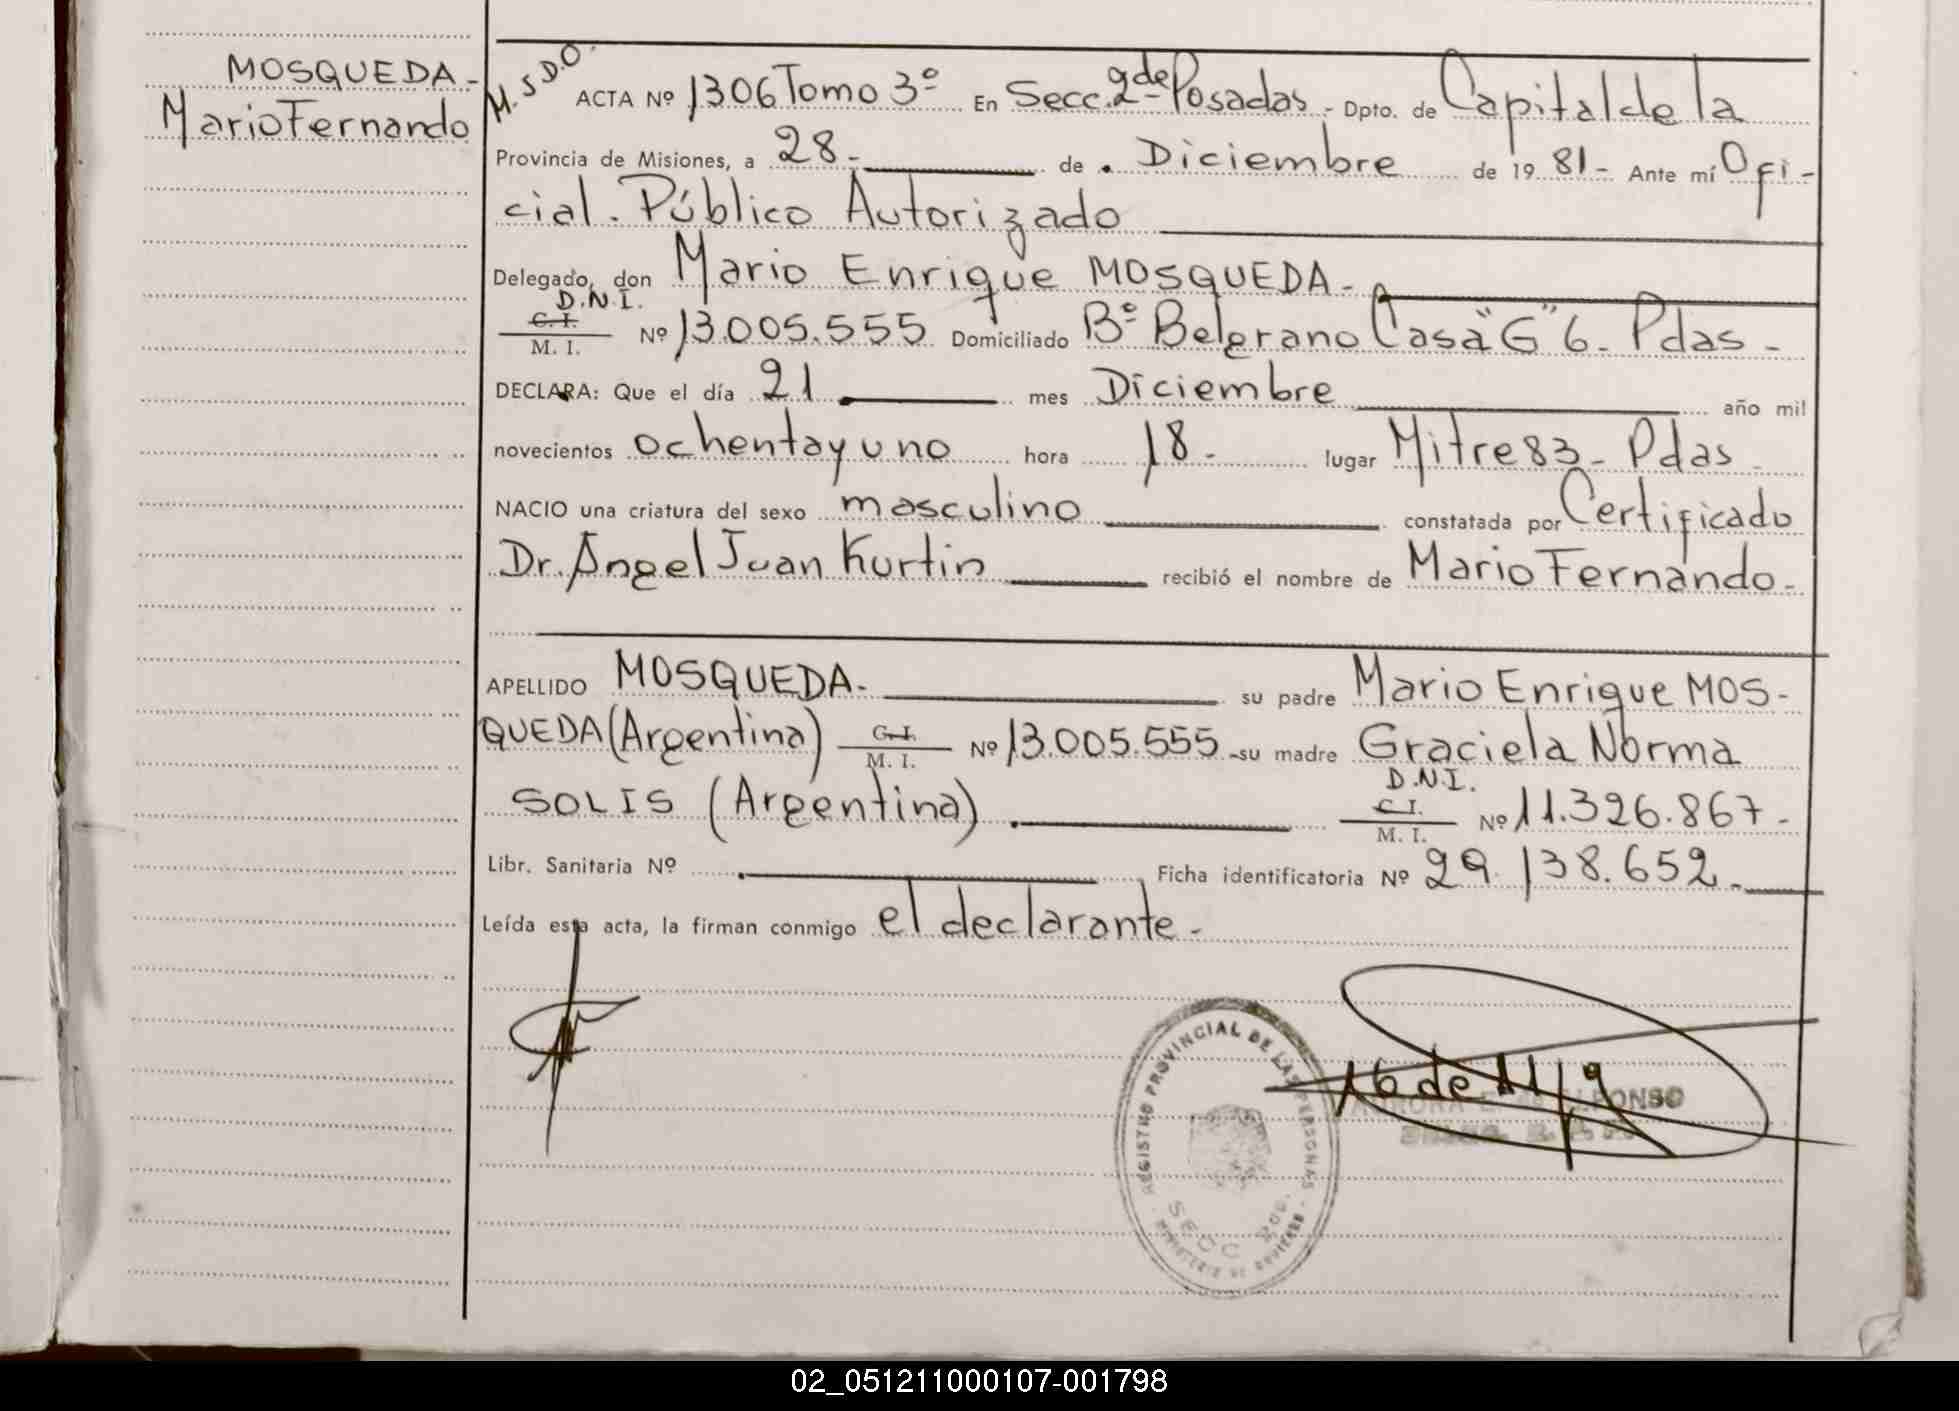 MOSQUEDA-
Mario Fernando
M.S.D.O.
ACTA Nº 1306 Tomo 3º En Secc. 2da Posadas.- Dpto. de Capital de la
Provincia de Misiones, a 28- de Diciembre de 1981- Ante mí Ofi-
cial. Público Autorizado
Delegado, don Mario Enrique MOSQUEDA-
D.N.I.
C. I.
M. I.
Nº 13.005.555 Domiciliado Bº Belgrano Casa "G" 6- Pdas-
DECLARA: Que el día 21 mes Diciembre año mil
novecientos ochentayuno hora 18- lugar Mitre 83- Pdas
NACIO una criatura del sexo masculino constatada por Certificado
Dr. Angel Juan Kurtin recibió el nombre de Mario Fernando-
APELLIDO MOSQUEDA- su padre Mario Enrique MOS-
QUEDA (Argentina) C. I. M. I. Nº 13.005.555 -su madre Graciela Norma
D.N.I.
SOLIS (Argentina) C. I. M. I. Nº 11.326.867-
Libr. Sanitaria Nº Ficha identificatoria Nº 29.138.652-
Leída esta acta, la firman conmigo el declarante-
REGISTRO PROVINCIAL DE LAS PERSONAS
02_051211000107-001798